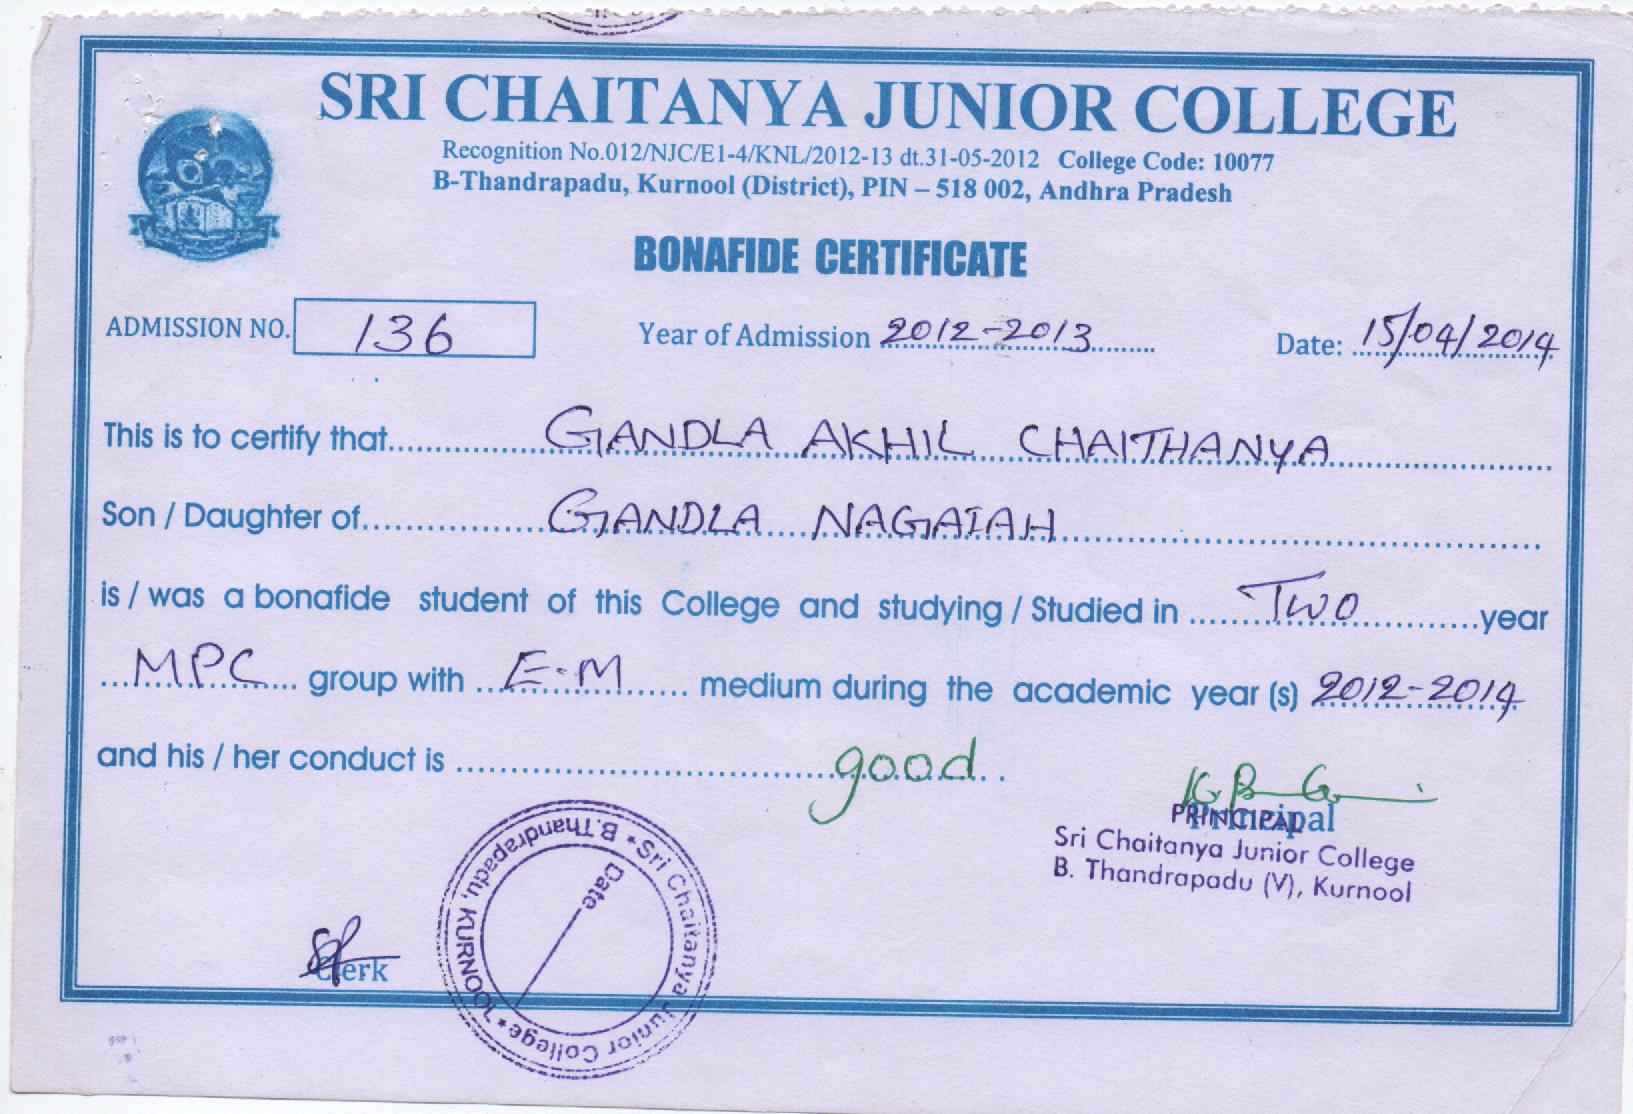 SRI CHAITANYA JUNIOR COLLEGE
Recognition No.012/NJC/E1-4/KNL/2012-13 dt.31-05-2012 College Code: 10077
B-Thandrapadu, Kurnool (District), PIN – 518 002, Andhra Pradesh
BONAFIDE CERTIFICATE
ADMISSION NO. 136 Year of Admission 2012-2013 Date: 15/04/2014
This is to certify that GANDLA AKHIL CHAITHANYA
Son / Daughter of GANDLA NAGAIAH
is / was a bonafide student of this College and studying / Studied in Two year
MPC group with E-M medium during the academic year (s) 2012-2014
and his / her conduct is good
Principal
PRINCIPAL
Sri Chaitanya Junior College
B. Thandrapadu (V), Kurnool
Clerk
Sri Chaitanya Junior College * B.Thandrapadu, KURNOOL *
Date